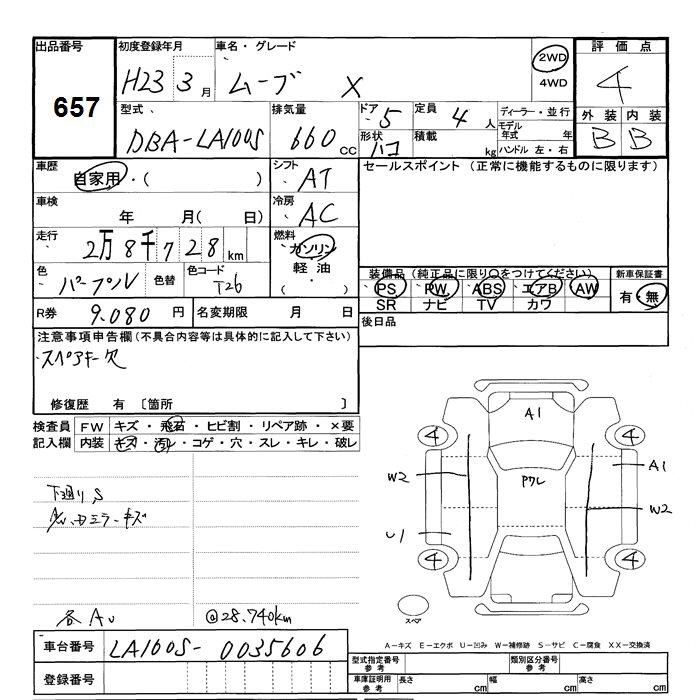 出品番号 初度登録年月 車名・グレード 評価点
657
H23 3月 ムーブ X 2WD 4WD 4
型式 排気量 ドア 5 定員 4人 ディーラー・並行 外装 内装
DBA-LA100S 660cc 形状 ハコ 積載 kg モデル年式 年 ハンドル 左・右 B B
車歴 自家用・( ) シフト AT セールスポイント (正常に機能するものに限ります)
車検 年 月( 日) 冷房 AC
走行 2万8千728km 燃料 ガソリン 軽油・( )
色 パープル 色替 色コード T26 装備品(純正品に限り○をつけてください) 新車保証書
PS PW ABS エアB AW 有・無
SR ナビ TV カワ
R券 9,080円 名変期限 月 日 後日品
注意事項申告欄(不具合内容等は具体的に記入して下さい)
スペアキー欠
修復歴 有 [箇所 ]
検査員記入欄 FW キズ・飛石・ヒビ割・リペア跡・×要
内装 キズ・汚レ・コゲ・穴・スレ・キレ・破レ
下廻りS
ミラーキズ
各AU
@28.740km
A1
4 4
W2 Pクレ A1
W2
U1
4 4
スペア
A-キズ E-エクボ U-凹み W-補修跡 S-サビ C-腐食 XX-交換済
車台番号 LA100S-0035606
登録番号
型式指定番号 参考 類別区分番号 参考
車庫証明用 参考 長さ cm 幅 cm 高さ cm